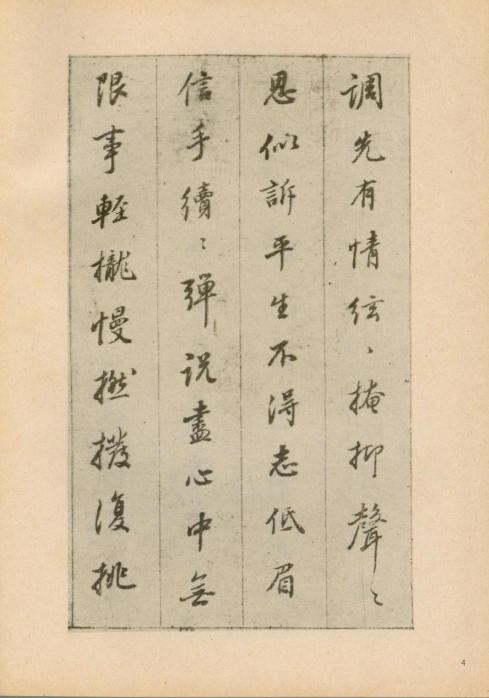 調先有情絃〻掩抑聲〻
思似訴平生不得志低眉
信手續〻彈説盡心中無
限事輕攏慢撚撥復挑
4